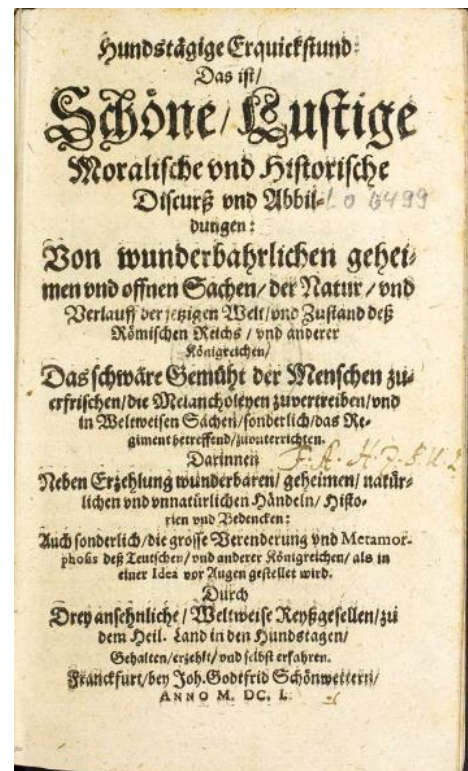 Hundstägige Erquickstund:
Das ist/
Schöne/ Lustige
Moralische vnd Historische
Discurß vnd Abbil-
L o 6499
dungen:
Von wunderbahrlichen gehei-
men vnd offnen Sachen/ der Natur/ vnd
Verlauff der jetzigen Welt/ vnd Zustand deß
Römischen Reichs/ vnd anderer
Königreichen/
Das schwäre Gemüht der Menschen zu-
erfrischen/ die Melancholeyen zuvertreiben/ vnd
in Weltweisen Sachen/ sonderlich/ das Re-
giment betreffend/ zuunterrichten.
Darinnen
Neben Erzehlung wunderbaren/ geheimen/ natür-
lichen vnd vnnatürlichen Händeln/ Histo-
rien vnd Bedencken:
Auch sonderlich/ die grosse Verenderung vnd Metamor-
phosis deß Teutschen/ vnd anderer Königreichen/ als in
einer Idea vor Augen gestellet wird.
Durch
Drey ansehnliche/ Weltweise Reyßgesellen/ zu
dem Heil. Land in den Hundstagen/
Gehalten/ erzehlt/ vnd selbst erfahren.
Franckfurt/ bey Joh. Godtfrid Schönwettern/
ANNO M. DC. L.